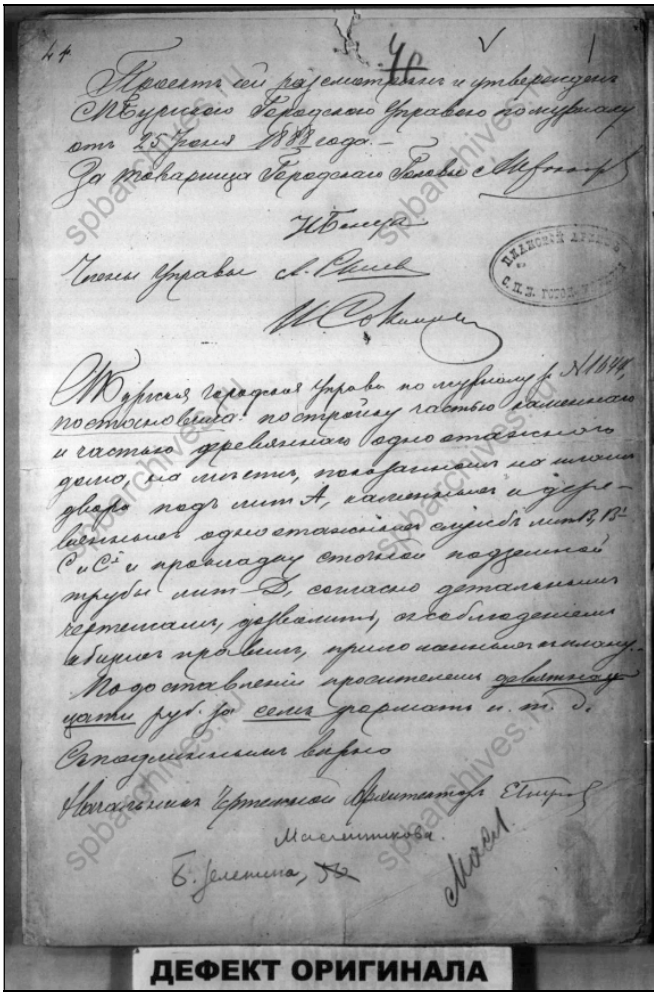 44
40
Проектъ сей разсмотренъ и утвержденъ
СПБургскою Городскою Управою по журналу
отъ 25 Июня 1888 года.
За товарища Городскаго Головы
Члены Управы
И. Соколов
ПЛАНСКОЙ АРХИВЪ
С.П.Б. ГОРОД. УПРАВЫ
СПбургская городская Управа по журналу
постановила: постройку частью каменнаго
и частью деревяннаго одноэтажнаго
дома, на месте, показанномъ на плане
двора подъ лит А, каменныхъ и дере-
вянныхъ одноэтажныхъ службъ лит В, В¹
С и С¹ и прокладку сточной подземной
трубы лит D, согласно детальнымъ
чертежамъ, дозволить, съ соблюдениемъ
общихъ правилъ, приложенныхъ к плану.
По доставлении просителемъ девятнад-
цати руб. за семь форматъ и. т. д.
Съ подлиннымъ верно
Начальникъ Чертежной Архитекторъ
Масленникова.
Б. Зеленина, 36
Масл.
ДЕФЕКТ ОРИГИНАЛА
spbarchives.ru
spbarchives.ru
spbarchives.ru
spbarchives.ru
spbarchives.ru
spbarchives.ru